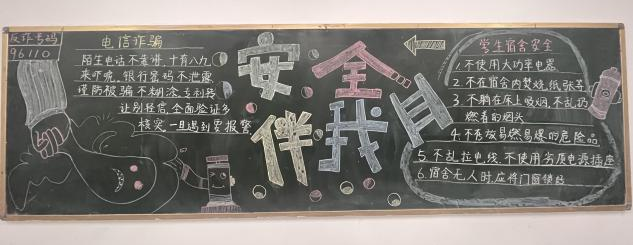 反诈号码
96110
电信诈骗
陌生电话不靠谱,十有八九
来吓唬,银行密码不泄露
谨防被骗不糊涂,专利转
让别轻信,全面验证多
核实,一旦遇到要报警
安全
伴我
学生宿舍安全
1.不使用大功率电器
2.不在宿舍内焚烧纸张等
3.不躺在床上吸烟,不乱扔
燃着的烟头
4.不存放易燃易爆的危险品
5.不乱拉电线,不使用劣质电源插座
6.宿舍无人时,应将门窗锁好